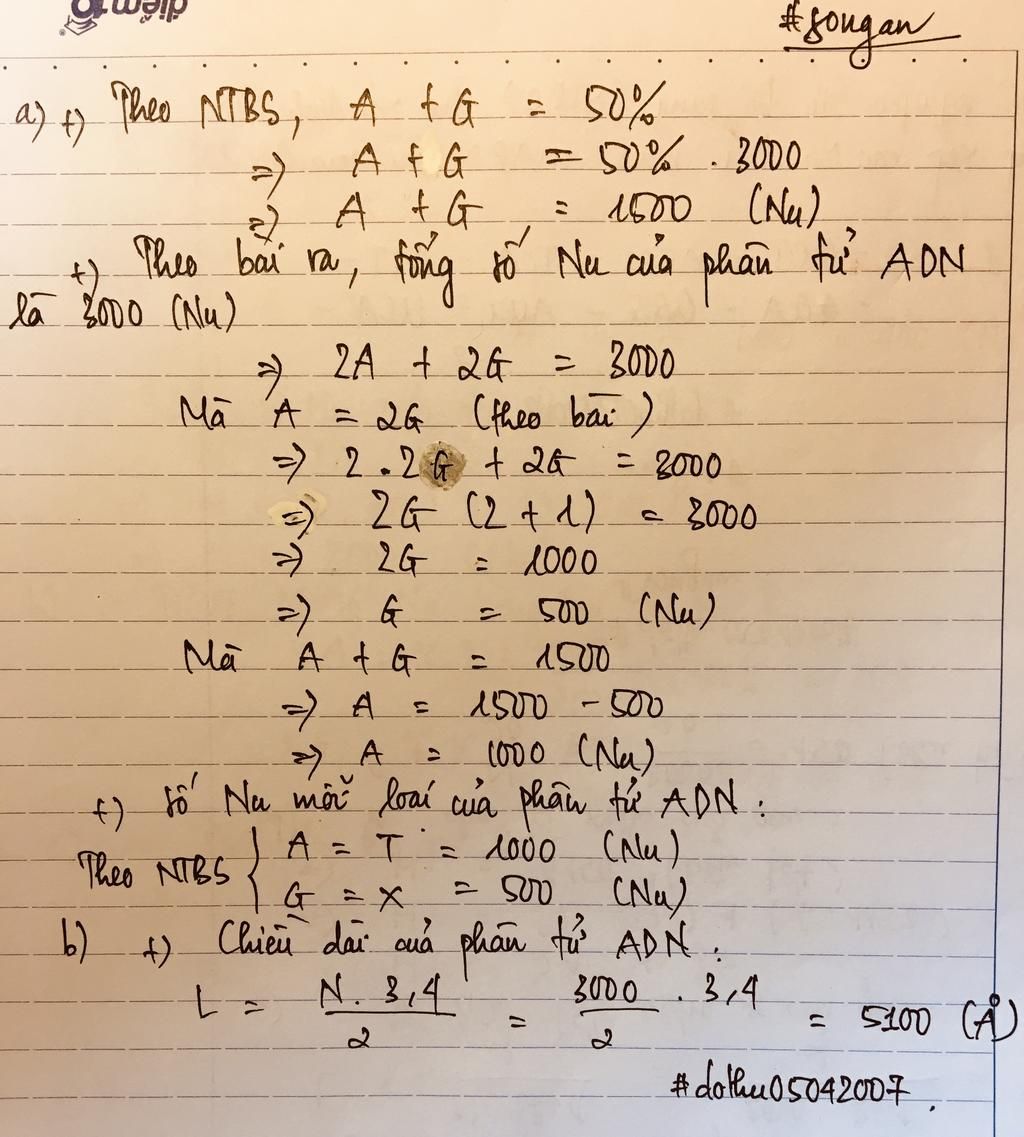 điểm 10
#songan
a) +) Theo NTBS, A + G = 50%
=) A + G = 50% . 3000
=) A + G = 1500 (Nu)
+) Theo bài ra, tổng số Nu của phân tử ADN
là 3000 (Nu)
=) 2A + 2G = 3000
Mà A = 2G (theo bài)
=) 2.2G + 2G = 3000
=) 2G (2 + 1) = 3000
=) 2G = 1000
=) G = 500 (Nu)
Mà A + G = 1500
=) A = 1500 - 500
=) A = 1000 (Nu)
+) Số Nu mỗi loại của phân tử ADN :
Theo NTBS { A = T = 1000 (Nu)
G = X = 500 (Nu)
b) +) Chiều dài của phân tử ADN :
L = N. 3,4 / 2 = 3000 / 2 . 3,4 = 5100 (Å)
#dothu05042007.